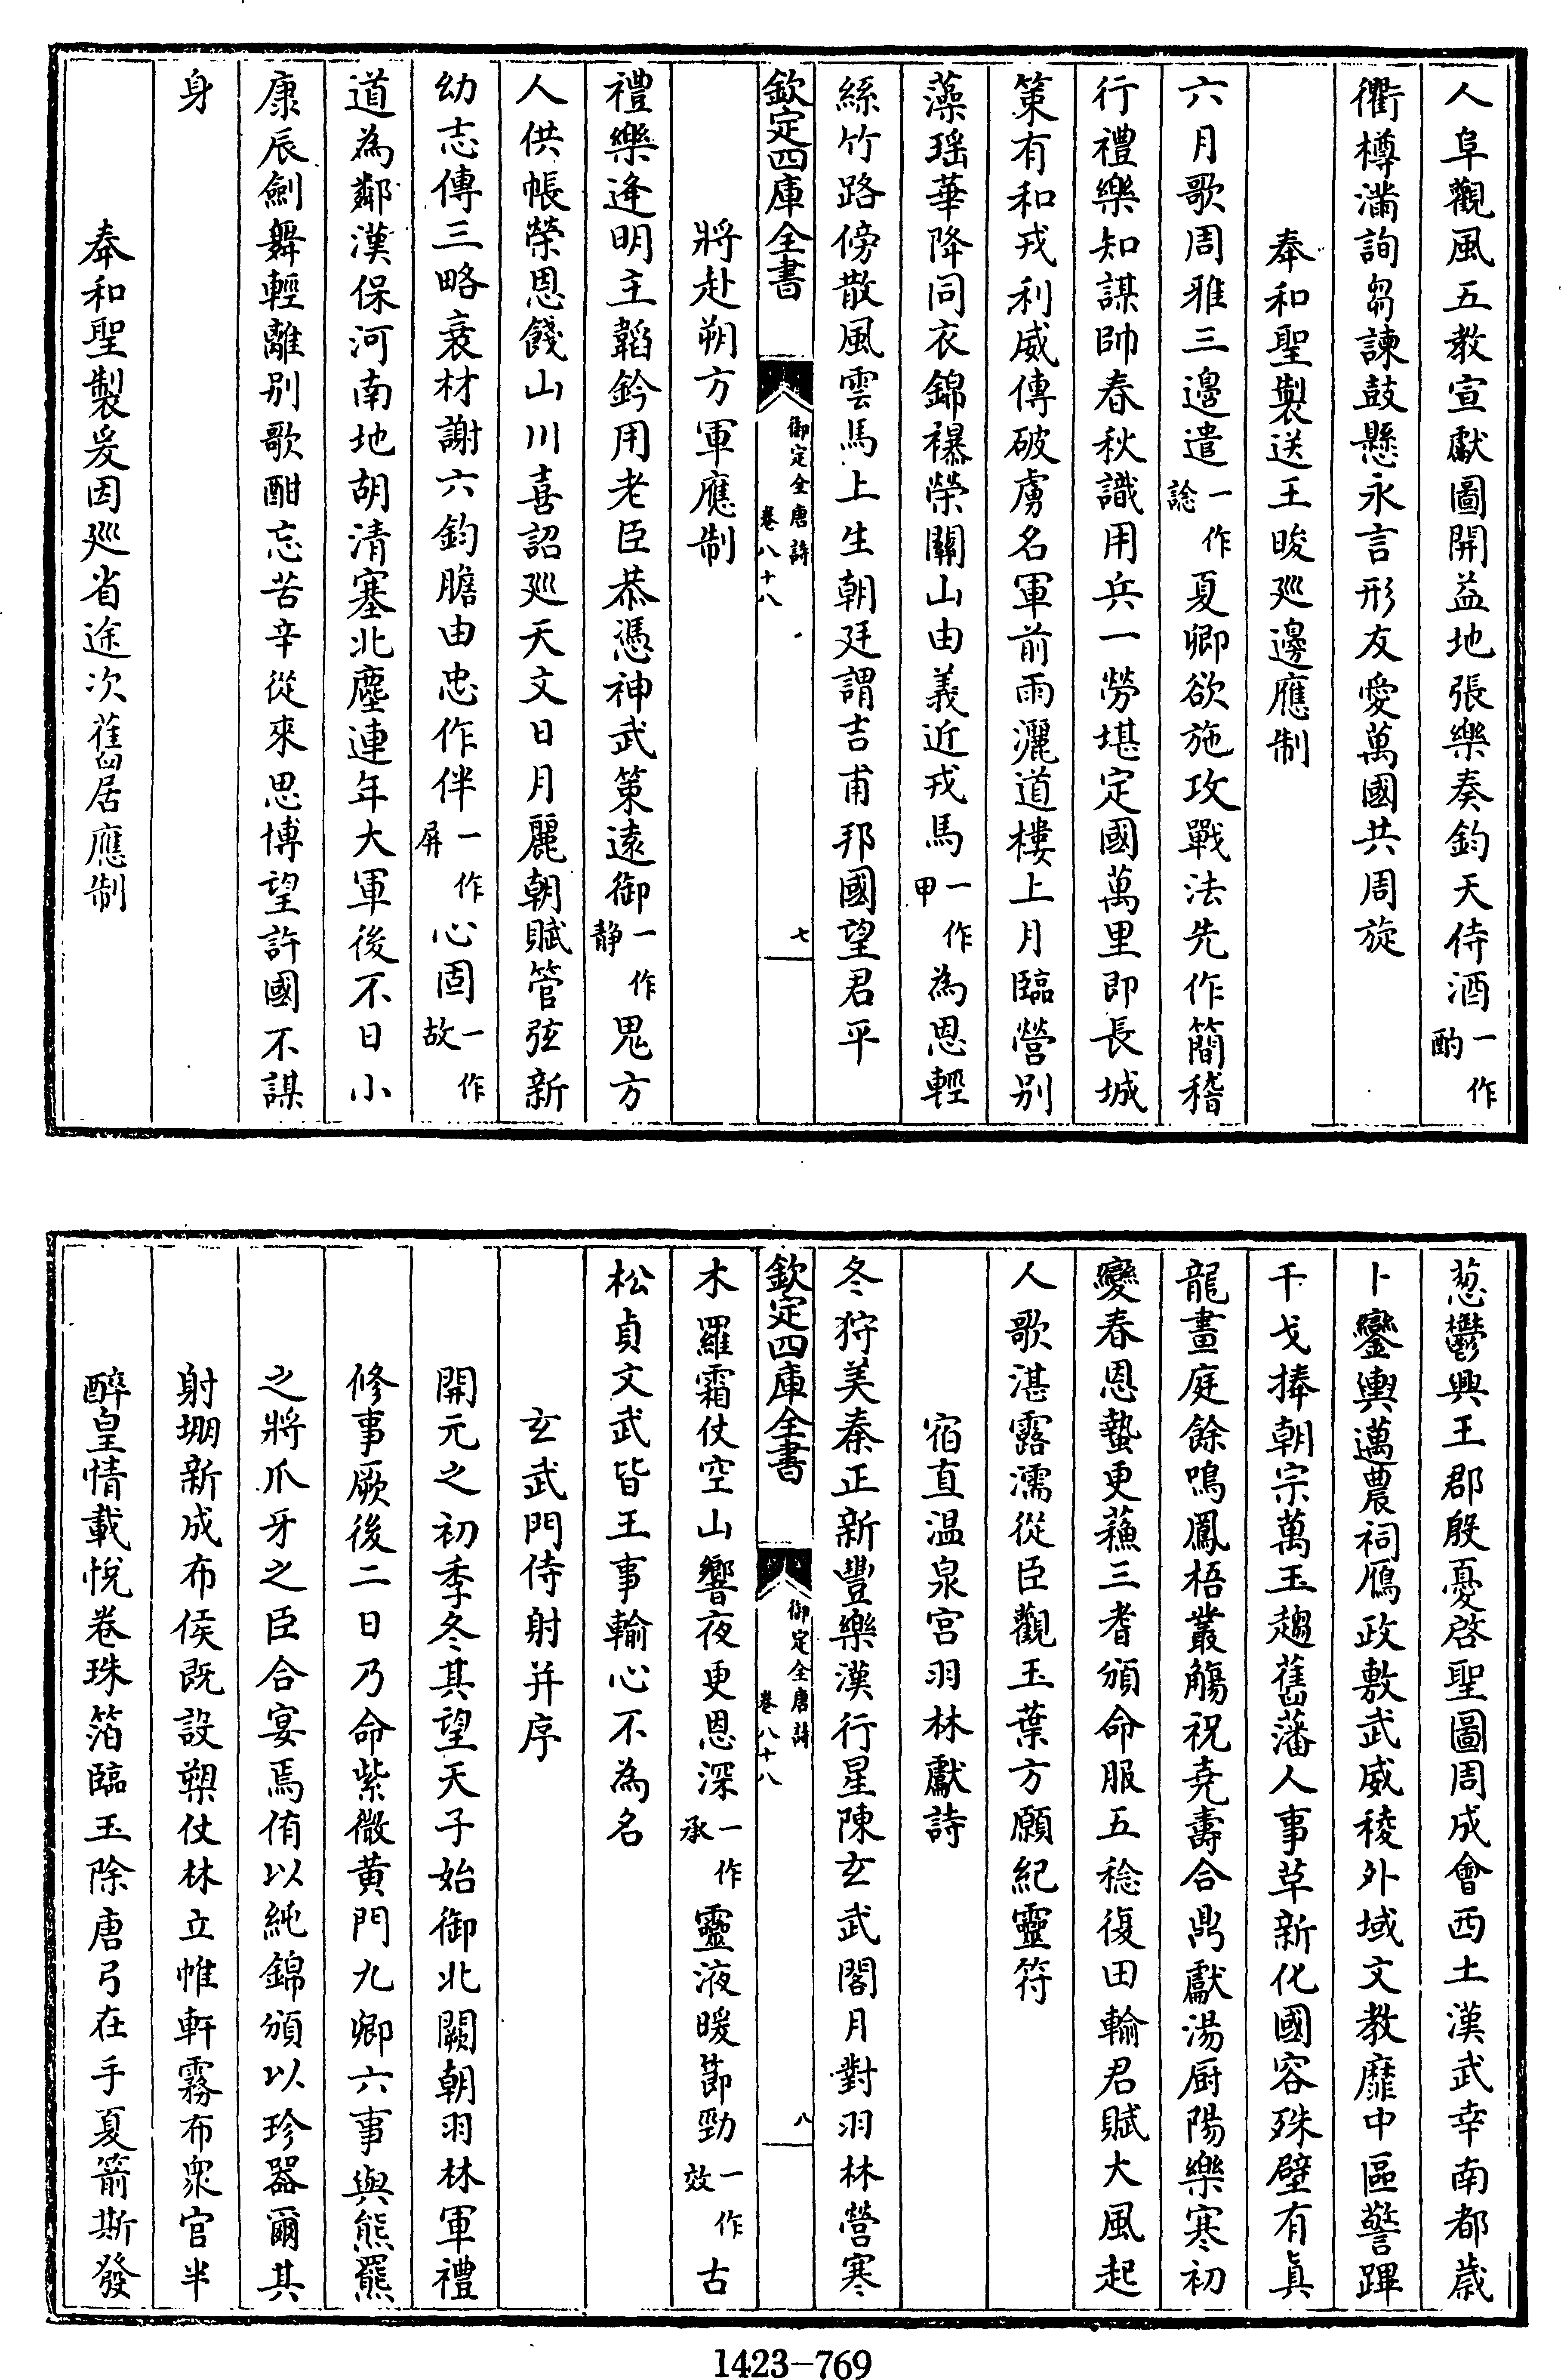 人阜觀風五教宣獻圖開益地張樂奏鈞天侍酒一作酌
衢樽滿詢芻諫鼓懸永言形友愛萬國共周旋
奉和聖製送王晙廵邊應制
六月歌周雅三邊遣一作諗夏卿欲施攻戰法先作簡稽
行禮樂知謀帥春秋識用兵一勞堪定國萬里即長城
策有和戎利威傳破虜名軍前雨灑道樓上月臨營别
藻瑶華降同衣錦襮榮關山由義近戎馬一作甲為恩輕
絲竹路傍散風雲馬上生朝廷謂吉甫邦國望君平
欽定四庫全書
御定全唐詩
卷八十八
七
將赴朔方軍應制
禮樂逢明主韜鈐用老臣恭憑神武策遠御一作静鬼方
人供帳榮恩餞山川喜詔廵天文日月麗朝賦管弦新
幼志傳三略衰材謝六鈞膽由忠作伴一作屏心固一作故
道為鄰漢保河南地胡清塞北塵連年大軍後不日小
康辰劍舞輕離别歌酣忘苦辛從來思博望許國不謀
身
奉和聖製爰因廵省途次舊居應制
葱鬱興王郡殷憂啓聖圖周成會西土漢武幸南都歲
卜鑾輿邁農祠鴈政敷武威稜外域文教靡中區警蹕
干戈捧朝宗萬玉趨舊藩人事草新化國容殊壁有真
龍畫庭餘鳴鳳梧叢觴祝堯壽合鼎獻湯厨陽樂寒初
變春恩蟄更蘇三耆頒命服五稔復田輸君賦大風起
人歌湛露濡從臣觀玉葉方願紀靈符
宿直温泉宫羽林獻詩
冬狩美秦正新豐樂漢行星陳玄武閣月對羽林營寒
欽定四庫全書
御定全唐詩
卷八十八
八
木羅霜仗空山響夜更恩深一作承靈液暖節勁一作效古
松貞文武皆王事輸心不為名
玄武門侍射并序
開元之初季冬其望天子始御北闕朝羽林軍禮
修事厥後二日乃命紫微黄門九卿六事與熊羆
之將爪牙之臣合宴焉侑以純錦頒以珍器爾其
射堋新成布侯既設槊仗林立帷軒霧布衆官半
醉皇情載悅卷珠箔臨玉除唐弓在手夏箭斯發
1423-769